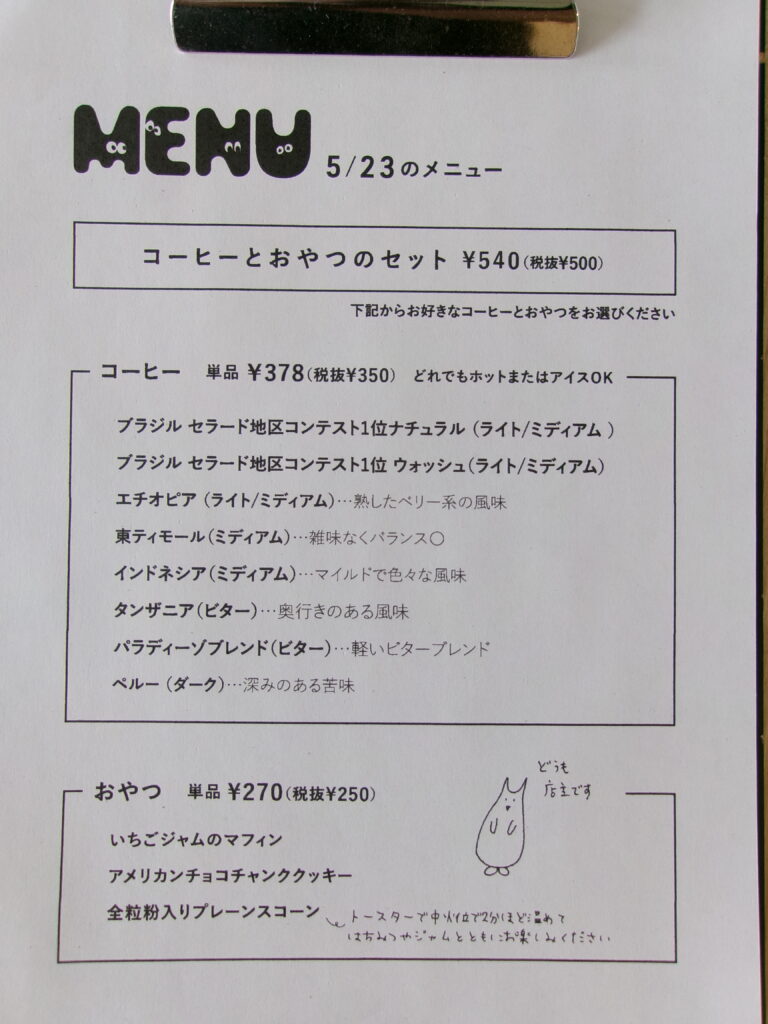 MENU 5/23のメニュー
コーヒーとおやつのセット ¥540(税抜¥500)
下記からお好きなコーヒーとおやつをお選びください
コーヒー 単品 ¥378(税抜¥350) どれでもホットまたはアイスOK
ブラジル セラード地区コンテスト1位ナチュラル (ライト/ミディアム )
ブラジル セラード地区コンテスト1位 ウォッシュ(ライト/ミディアム)
エチオピア (ライト/ミディアム)…熟したベリー系の風味
東ティモール(ミディアム)…雑味なくバランス○
インドネシア(ミディアム)…マイルドで色々な風味
タンザニア(ビター)…奥行きのある風味
パラディーゾブレンド(ビター)…軽いビターブレンド
ペルー (ダーク)…深みのある苦味
どうも
店主です
おやつ 単品 ¥270(税抜¥250)
いちごジャムのマフィン
アメリカンチョコチャンククッキー
全粒粉入りプレーンスコーン
トースターで中火位で2分ほど温めて
はちみつやジャムとともにお楽しみください